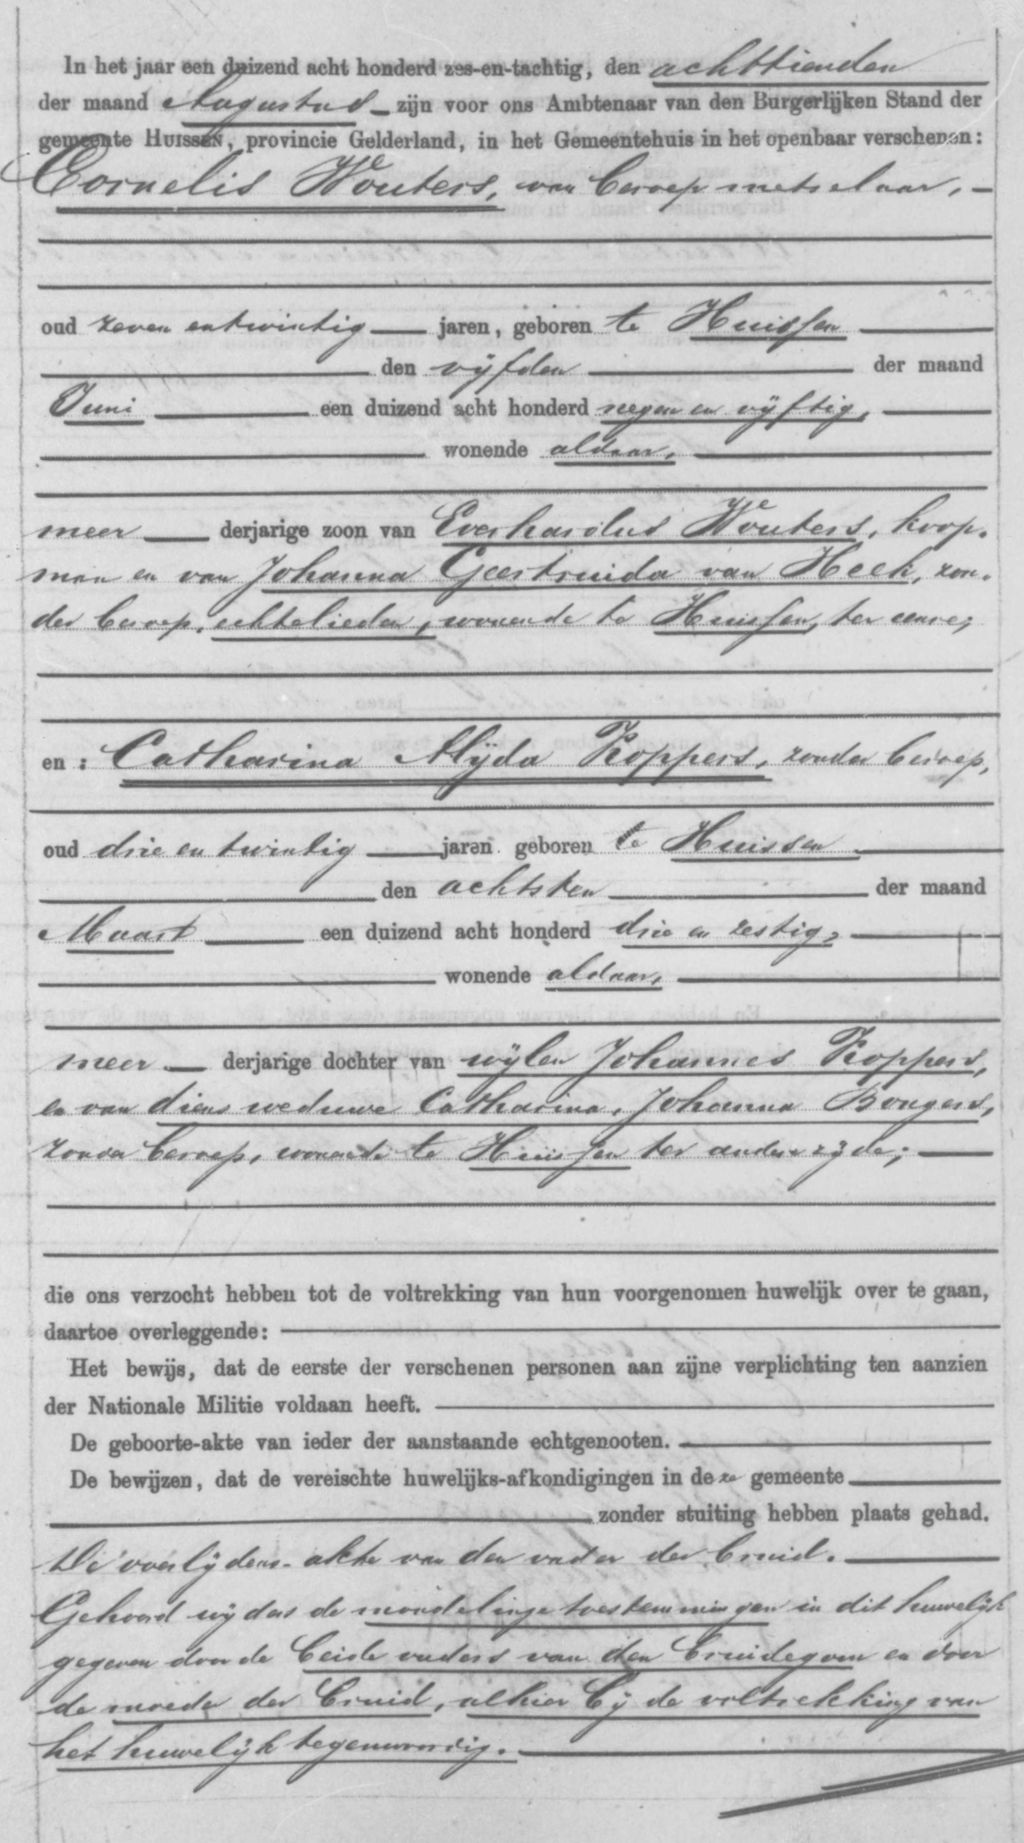 In het jaar een duizend acht honderd zes-en-tachtig, den achttienden
der maand Augustus zijn voor ons Ambtenaar van den Burgerlijken Stand der
gemeente HUISSEN, provincie Gelderland, in het Gemeentehuis in het openbaar verschenen:
Cornelis Wouters, van beroep metselaar,
oud zeven en twintig jaren, geboren te Huissen
den vijfden der maand
Juni een duizend acht honderd negen en vijftig,
wonende aldaar,
meer derjarige zoon van Everhardus Wouters, koop-
man en van Johanna Geertruida van Heek, zon-
der beroep, echtelieden, wonende te Huissen, ter eenre;
en: Catharina Alijda Koppers, zonder beroep,
oud drie en twintig jaren geboren te Huissen
den achtsten der maand
Maart een duizend acht honderd drie en zestig,
wonende aldaar,
meer derjarige dochter van wijlen Johannes Koppers,
en van diens weduwe Catharina Johanna Bongers,
zonder beroep, wonende te Huissen ter andere zijde;
die ons verzocht hebben tot de voltrekking van hun voorgenomen huwelijk over te gaan,
daartoe overleggende:
Het bewijs, dat de eerste der verschenen personen aan zijne verplichting ten aanzien
der Nationale Militie voldaan heeft.
De geboorte-akte van ieder der aanstaande echtgenooten.
De bewijzen, dat de vereischte huwelijks-afkondigingen in deze gemeente
zonder stuiting hebben plaats gehad.
De overlijdens-akte van den vader der bruid.
Gehoord wijders de mondelinge toestemmingen in dit huwelijk
gegeven door de beide ouders van den bruidegom en door
de moeder der bruid, alhier bij de voltrekking van
het huwelijk tegenwoordig.